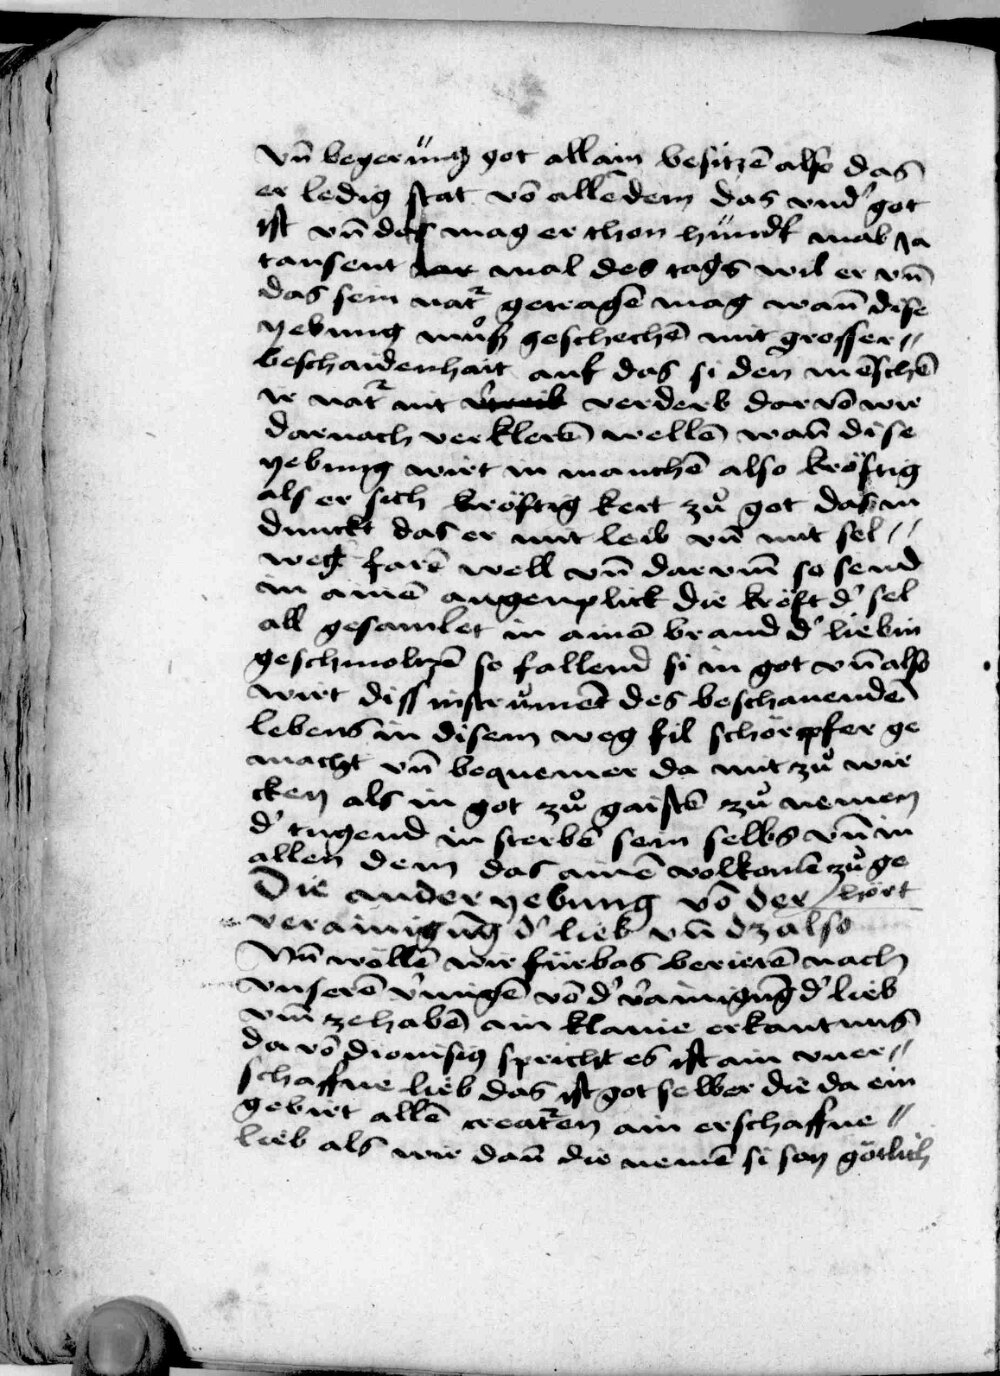 vn̄ begerüng got allain besitzē also das
er ledig stat vō allē dem das vnd' got
ist vn̄ des mag er thon hundt mal ja
tausent mal des tags wil er vn̄
das sein nat᷑ getragē mag wan̄ dise
yebung mu̇ß geschechē mit grosser //
beschaidenhait auf das si den mēschē
ir nat᷑ nit verderb dar vō wir
darnach verklerē wellē wan̄ dise
yebung wirt in manchē also kröftig
als er sich kröftig kert zu̇ got das in
dunckt das er mit leib vn̄ mit sel //
weg farē well vn̄ darvm̄ so send
in ainē augenplick die kröft d' sel
all gesamlet in ainē brand d' lieb in
geschmoltzē so fallend si in got vn̄ also
wirt diss instrumēt des beschauendē
lebens in disem weg fil schörpfer ge
macht vn̄ bequemer da mit zu̇ wir
cken als in got zu̇ gaistē zu̇ nemen
d' tugend in sterbē sein selbs vn̄ in
allen dem das ainē volkomē zu̇ ge
Die ander yebung vō der / hört
verainigūg d' lieb vn̄ dz also
Nu̅ wöllē wir fürbas berierē nach
vnserē v'mugē vō d' v'ainigūg d' lieb
vm̄ ze habē ain klaine erkantnus
da vō dionisiꝰ spricht es ist ain vner //
schaffne lieb das ist got selber die da ein
gebirt allē creat᷑en ain erschaffne //
lieb als wir dan̄ die nemē si sey götlich